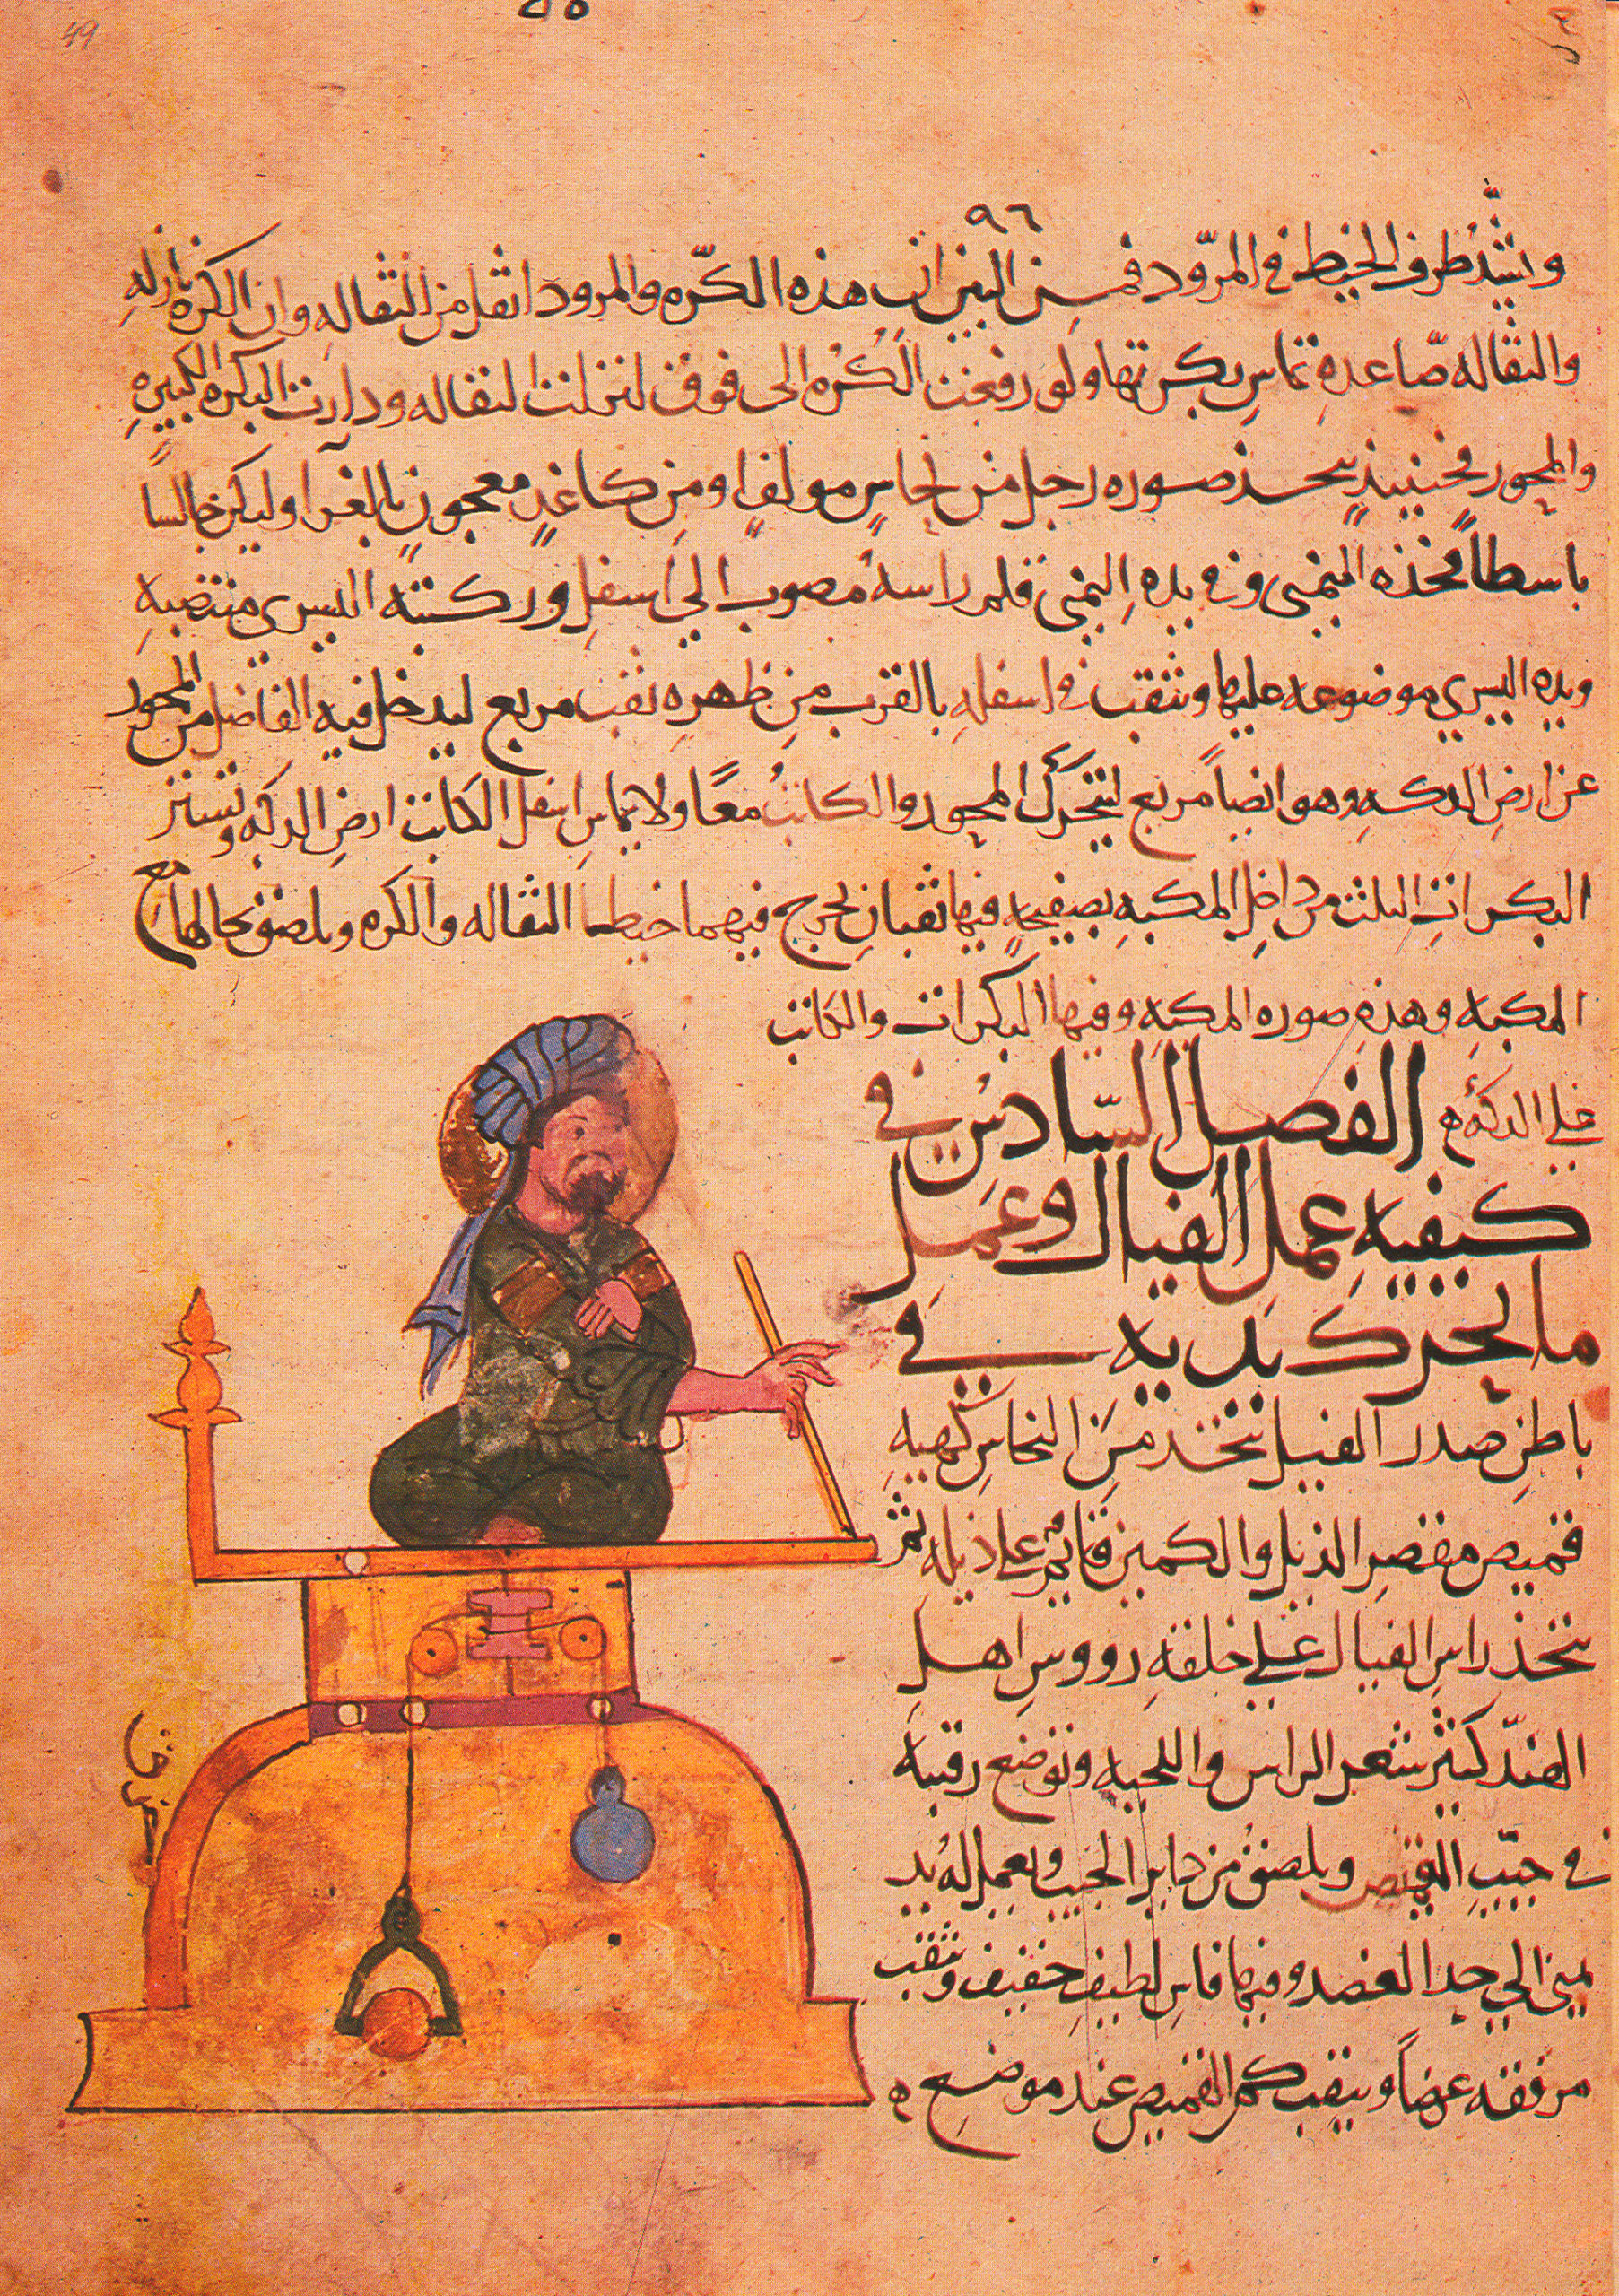 ٩٦
ويشد طرف الخيط في المرود فمن البين ان هذه الكره والمرود اثقل من الثقاله وان الكره نازله
والثقاله صاعده تماس بكرتها ولو رفعت الكره الى فوق لنزلت الثقاله ودارت البكره الكبيره
والمحور فحينيذ يتخذ صوره رجل من نحاس مولفا ومن كاغد معجون بالغرا وليكن جالسا
باسطا فخذه اليمنى وفي يده اليمنى قلم راسه مصوب الى اسفل وركبته اليسرى منتصبه
ويده اليسرى موضوعه عليها ويثقب في اسفله بالقرب من ظهره ثقب مربع ليدخل فيه الفاضل من المحور
عن ارض الدكه وهو ايضا مربع ليتحرك المحور والكاتب معا ولا يماس اسفل الكاتب ارض الدكه وتستر
البكرات الثلث من داخل المكبه بصفيحه فيها ثقبان يخرج فيهما خيطا الثقاله والكره ويلصق بحالها مع
المكبه وهذه صوره المكبه وفيها البكرات والكاتب
على الدكه ه الفصل السادس في
كيفيه عمل الفيال وعمل
ما يتحرك يديه في
باطن صدر الفيل يتخذ من النحاس كهيه
قميص مقصر الذيل والكمين قايم على ذيله ثم
يتخذ راس الفيال على خلقه رووس اهل
الهند كثير شعر الراس واللحيه وتوضع رقبته
في جيب القميص ويلصق من داير الجيب ويعمل له يد
يمنى الى حد العضد وفيها فاس لطيف خفيف ويثقب
مرفقه عرضا ويثقب كم القميص عند موضع ه
49